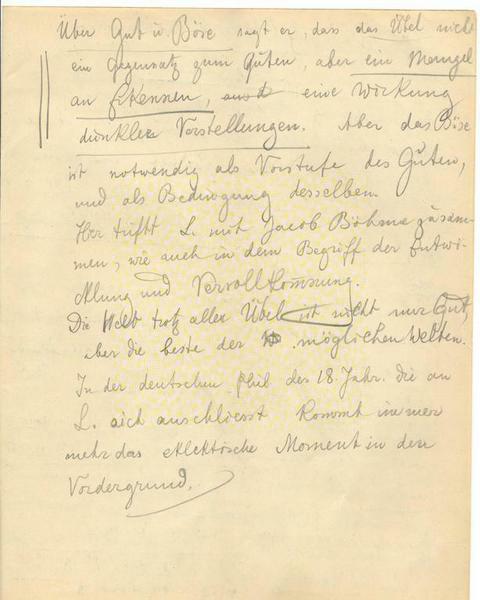 Über Gut u. Böse sagt er, dass das Übel nicht
ein Gegensatz zum Guten, aber ein Mangel
an Erkennen, eine Wirkung
dunkler Vorstellungen. Aber das Böse
ist notwendig als Vorstufe des Guten,
und als Bedingung desselben.
Hier trifft L. mit Jacob Böhme zusam-
men, wie auch in dem Begriff der Entwi-
cklung und Vervollkommnung.
Die Welt trotz aller Übel ist nicht nur Gut,
aber die beste der möglichen Welten.
In der deutschen Phil des 18. Jahr. die an
L. sich anschliesst kommt immer
mehr das eklektische Moment in den
Vordergrund.